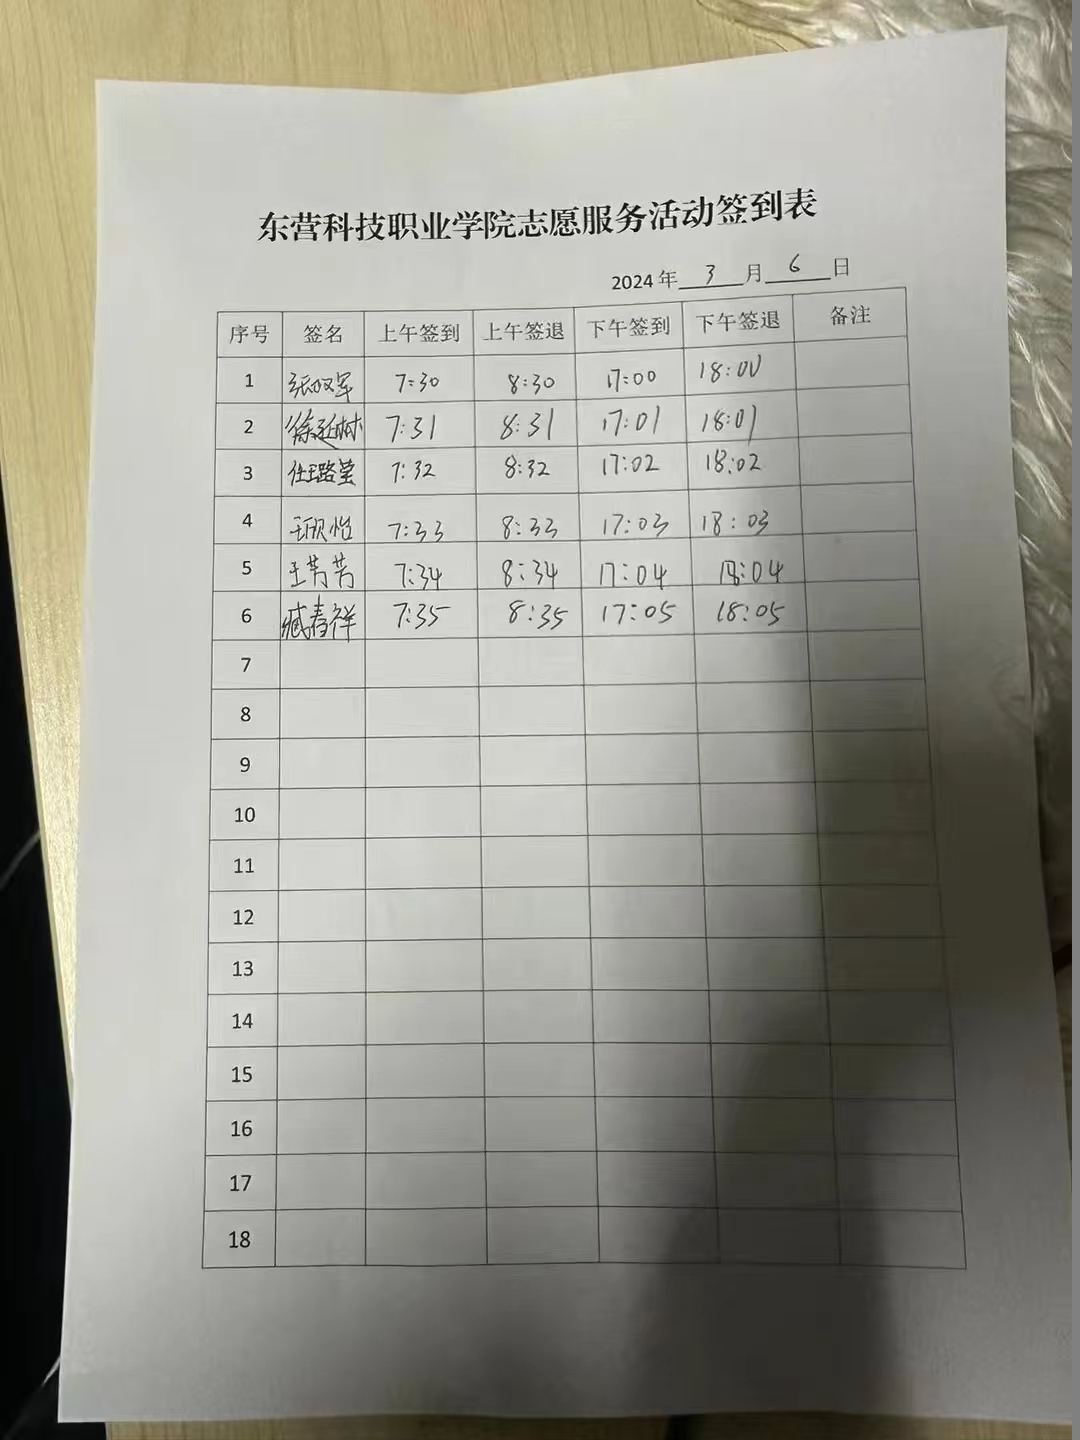 东营科技职业学院志愿服务活动签到表
2024 年 3 月 6 日
序号 签名 上午签到 上午签退 下午签到 下午签退 备注
1 张双军 7:30 8:30 17:00 18:00
2 徐延树 7:31 8:31 17:01 18:01
3 任璐莹 7:32 8:32 17:02 18:02
4 王欣怡 7:33 8:33 17:03 18:03
5 王芳芳 7:34 8:34 17:04 18:04
6 臧春祥 7:35 8:35 17:05 18:05
7
8
9
10
11
12
13
14
15
16
17
18